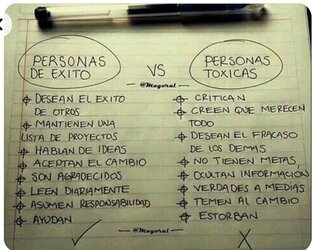 PERSONAS
DE EXITO
VS
PERSONAS
TOXICAS
@Mayoral
DESEAN EL EXITO
DE OTROS
MANTIENEN UNA
LISTA DE PROYECTOS
HABLAN DE IDEAS
ACEPTAN EL CAMBIO
SON AGRADECIDOS
LEEN DIARIAMENTE
ASUMEN RESPONSABILIDAD
AYUDAN
CRITICAN
CREEN QUE MERECEN
TODO
DESEAN EL FRACASO
DE LOS DEMAS
NO TIENEN METAS,
OCULTAN INFORMACIÓN
VERDADES A MEDIAS
TEMEN AL CAMBIO
ESTORBAN
@Mayoral